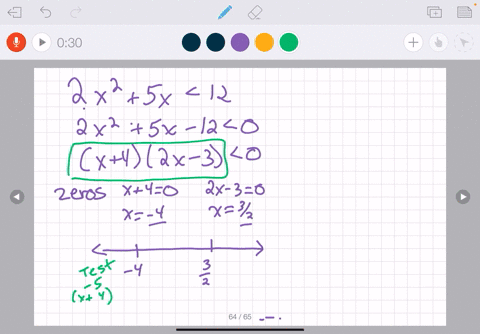 0:30
2x² + 5x < 12
2x² + 5x - 12 < 0
(x+4)(2x-3) < 0
zeros x+4=0 2x-3=0
x=-4 x=3/2
-4 3/2
Test
-5
(x+4)
64 / 65